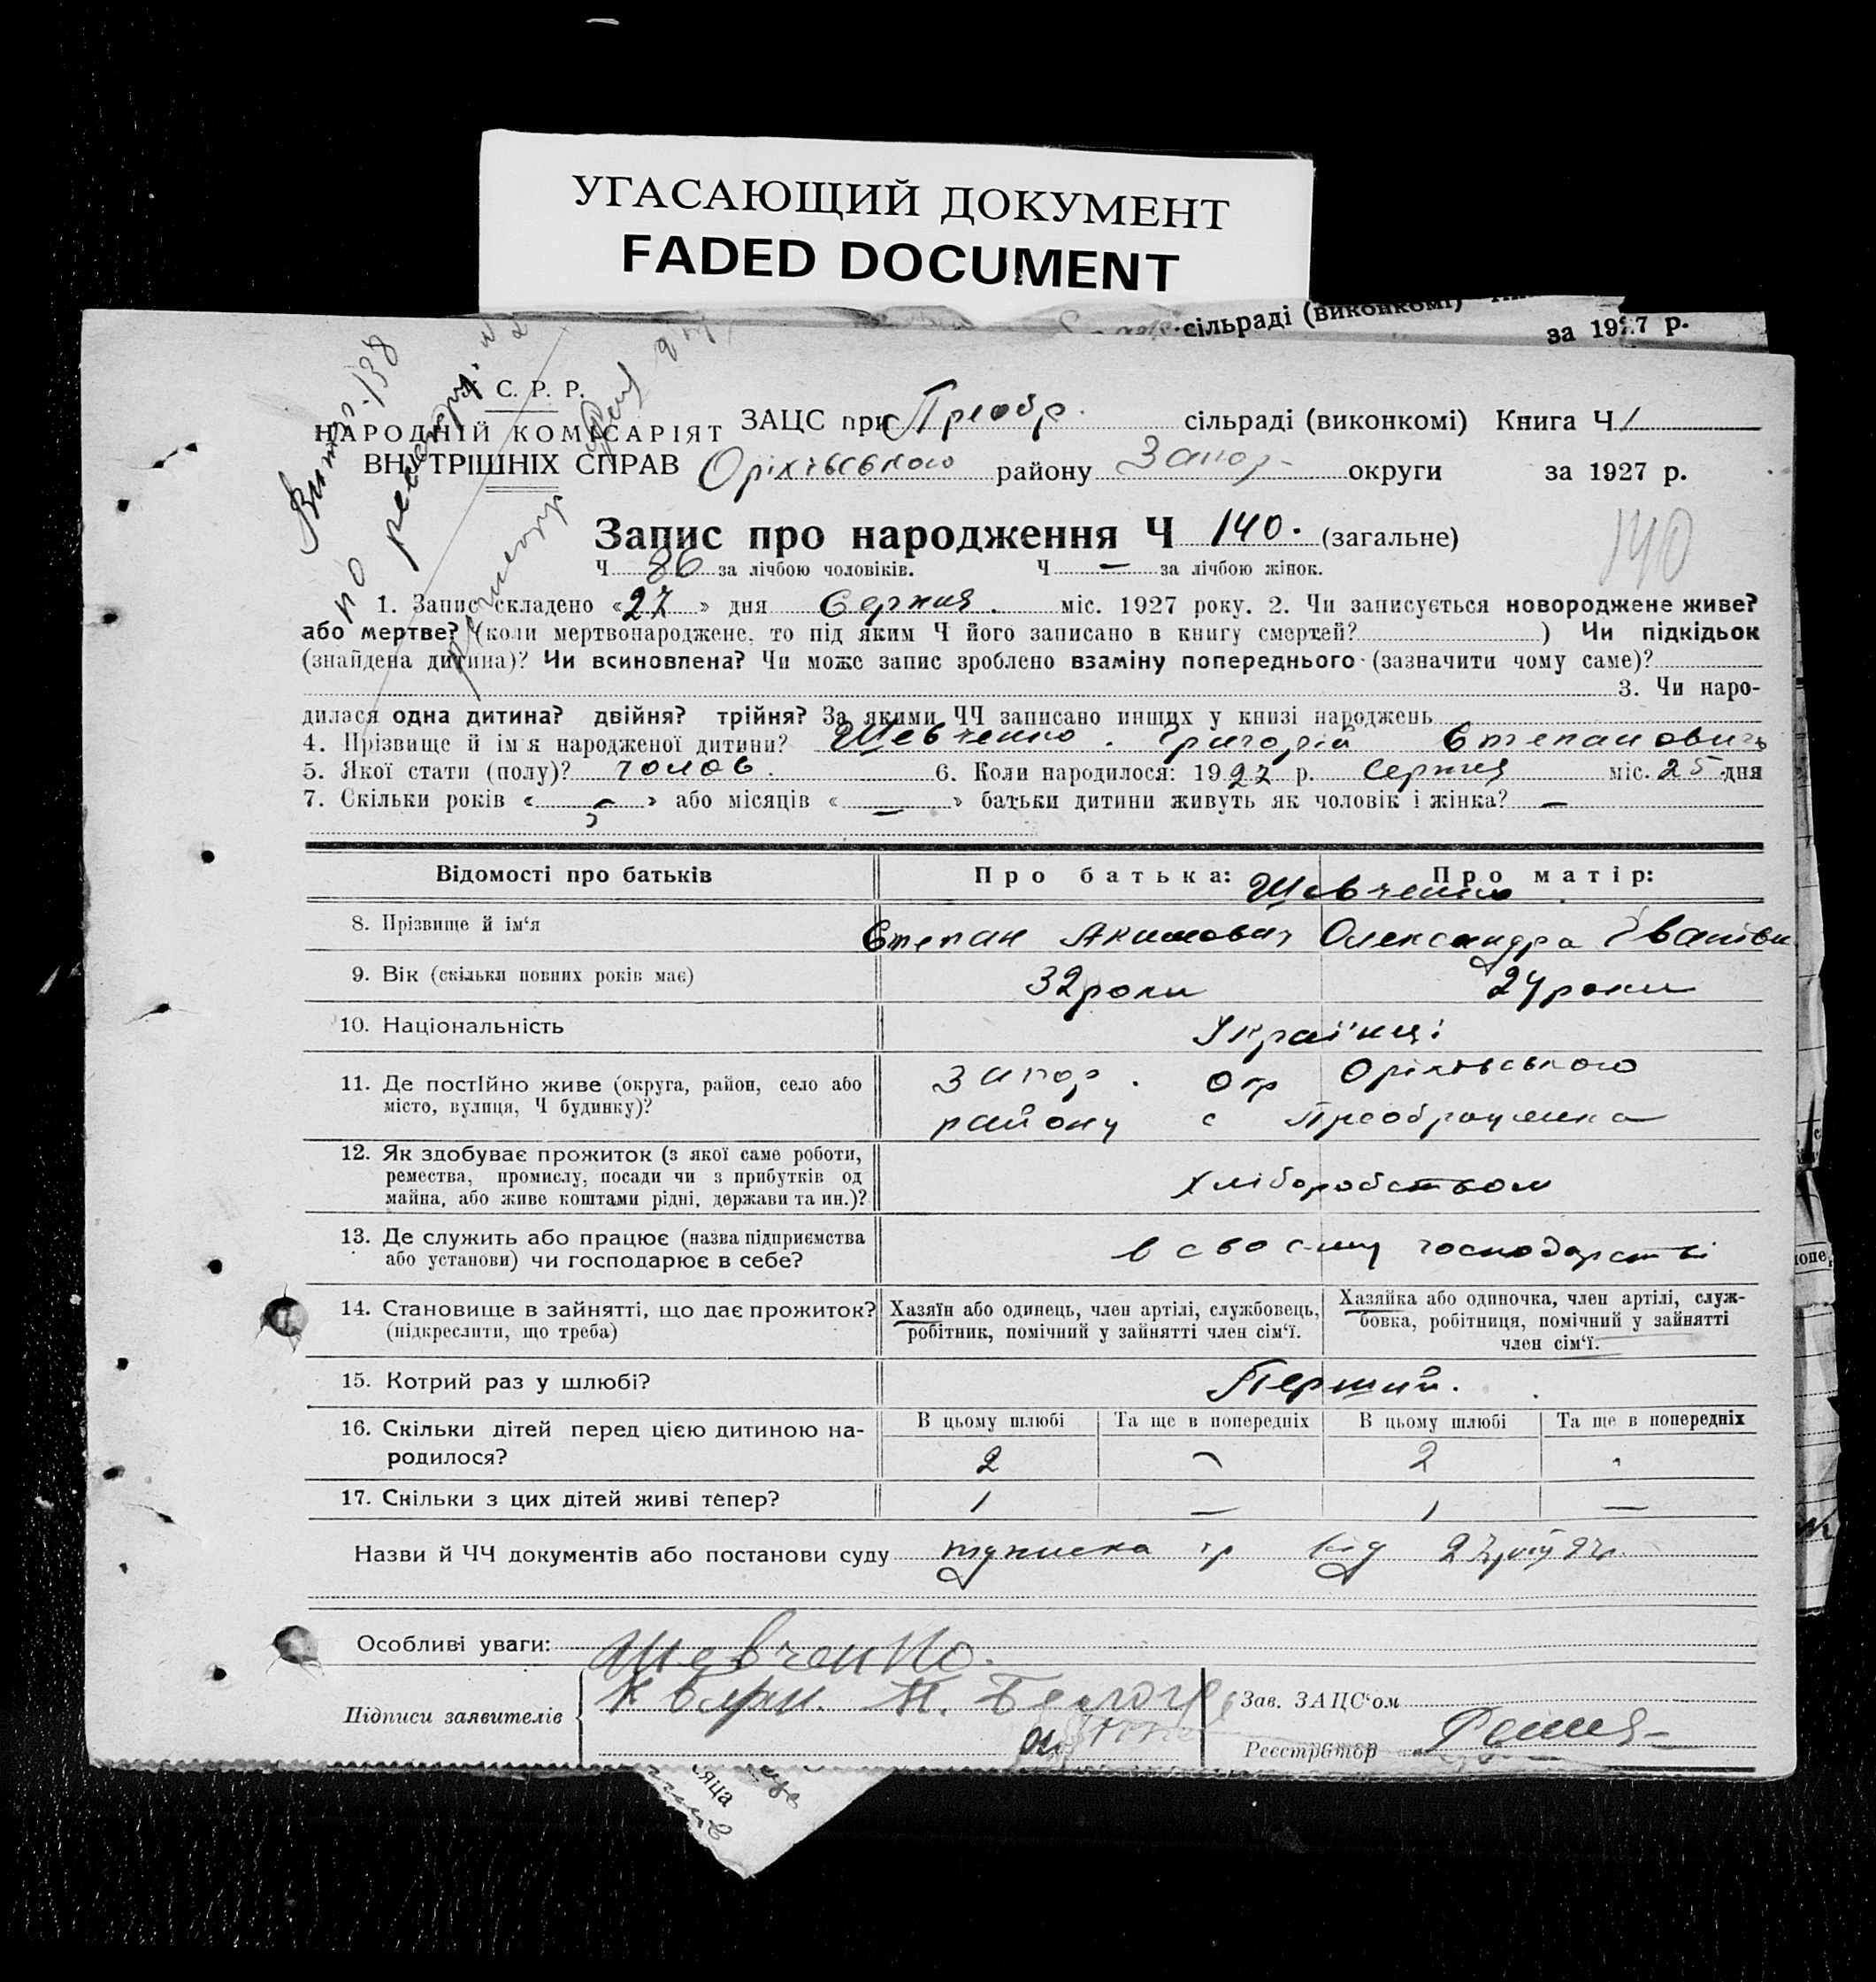 УГАСАЮЩИЙ ДОКУМЕНТ
FADED DOCUMENT
сільраді (виконкомі)
за 1927 р.
С. Р. Р.
НАРОДНІЙ КОМІСАРІЯТ
ВНУТРІШНІХ СПРАВ
по
138
ЗАЦС при Преобр. сільраді (виконкомі) Книга Ч 1
Оріхівського району Запор. округи за 1927 р.
Запис про народження Ч 140. (загальне)
140
Ч 86 за лічбою чоловіків. Ч — за лічбою жінок.
1. Запис складено «27» дня Серпня. міс. 1927 року. 2. Чи записується новороджене живе?
або мертве? (коли мертвонароджене, то під яким Ч його записано в книгу смертей? ) Чи підкідьок
(знайдена дитина)? Чи всиновлена? Чи може запис зроблено взаміну попереднього (зазначити чому саме)?
3. Чи наро-
дилася одна дитина? двійня? трійня? За якими ЧЧ записано инших у книзі народжень
4. Прізвище й ім'я народженої дитини? Шевченко. Григорій Степанович
5. Якої стати (полу)? чолов. 6. Коли народилося: 1927 р. Серпня міс. 25 дня
7. Скільки років « — » або місяців « — » батьки дитини живуть як чоловік і жінка? —
Відомості про батьків Про батька: Про матір:
Шевченко
8. Прізвище й ім'я Степан Акимович Олександра Іванівн
9. Вік (скільки повних років має) 32 роки 24 роки
10. Національність Українці
11. Де постійно живе (округа, район, село або Запор. окр Оріхівського
місто, вулиця, Ч будинку)? району с Преображенка
12. Як здобуває прожиток (з якої саме роботи,
ремества, промислу, посади чи з прибутків од
майна, або живе коштами рідні, держави та ин.)? хліборобством
13. Де служить або працює (назва підприємства
або установи) чи господарює в себе? в своєму господарстві
14. Становище в зайнятті, що дає прожиток? Хазяїн або одинець, член артілі, службовець, Хазяйка або одиночка, член артілі, служ-
(підкреслити, що треба) робітник, помічний у зайнятті член сім'ї. бовка, робітниця, помічний у зайнятті
член сім'ї.
15. Котрий раз у шлюбі? Перший.
16. Скільки дітей перед цією дитиною на- В цьому шлюбі Та ще в попередніх В цьому шлюбі Та ще в попередніх
родилося? 2 — 2
17. Скільки з цих дітей живі тепер? 1 — 1 —
Назви й ЧЧ документів або постанови суду підписка гр від 27/VIII 27р.
Особливі уваги: Шевченко.
Підписи заявителів
Зав. ЗАЦС'ом
Реєстратор